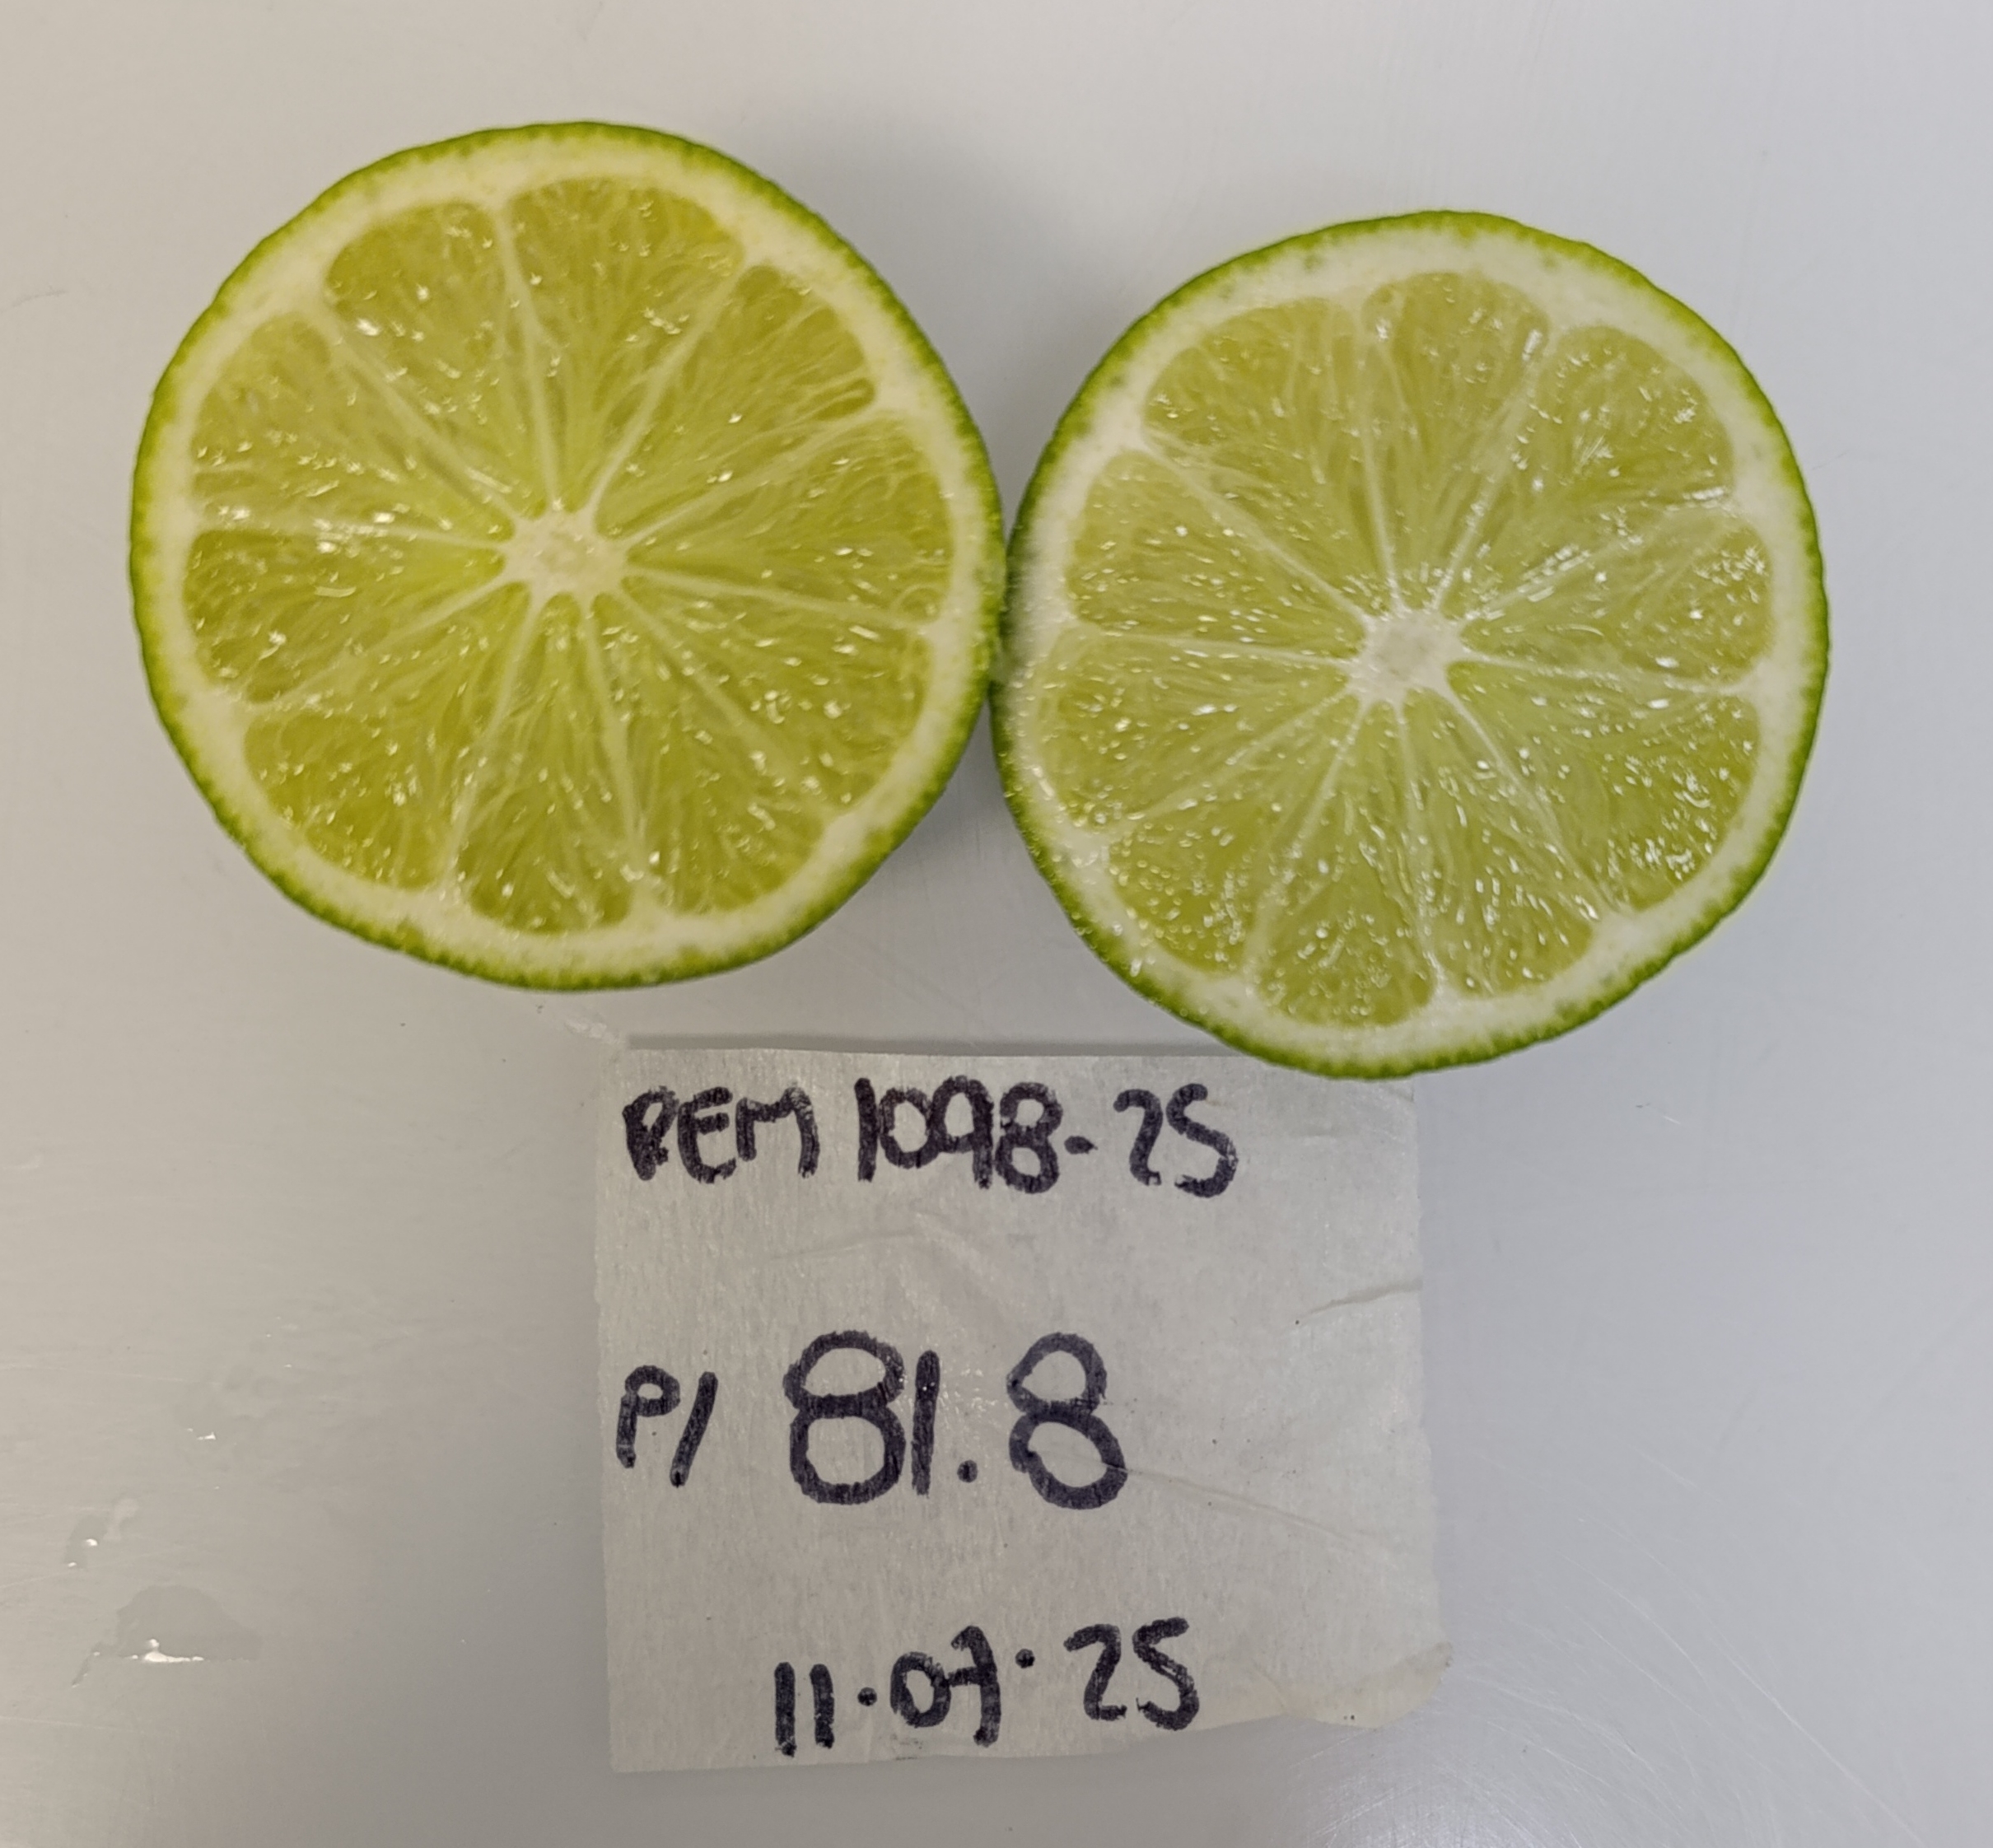 REM 1098-25
P/ 81.8
11.07.25